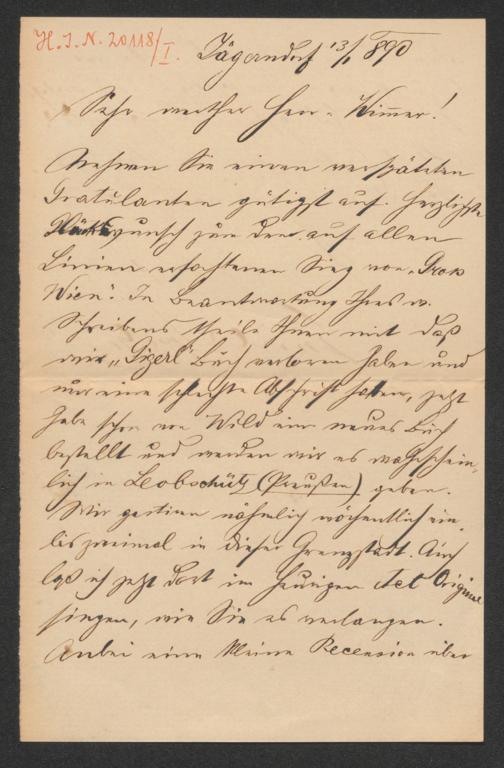 H.I.N. 20118/I.
Jägerndorf 13/1 890
Sehr werther Herr Wimmer!
Nehmen Sie einen verspäteten
Gratulanten gütigst auf. Herzlichste
Glückwunsch zum den auf allen
Linien erfochtenen Sieg von „Gross
Wien“. In Beantwortung Ihres w.
Schreibens theile Ihnen mit daß
wir „Gigerl“ Buch verloren haben und
nur eine schlechte Abschrift hatten, jetzt
habe schon von Wild ein neues Buch
bestellt und werden wir es wahrschein-
lich in Leobschütz (Preußen) geben.
Wir gastiren nähmlich wöchentlich ein
bis zweimal in dieser Grenzstadt. Auch
laß ich jetzt dort im Heurigen Act Original
singen, wie Sie es verlangen.
Anbei eine kleine Recension über